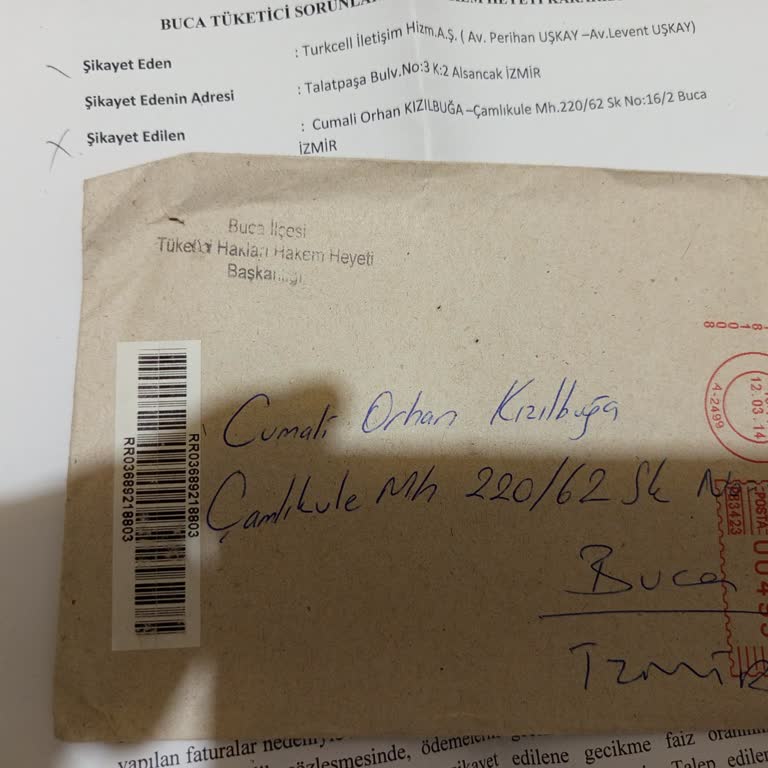 BUCA TÜKETİCİ SORUNLA
Şikayet Eden : Turkcell İletişim Hizm.A.Ş. ( Av. Perihan UŞKAY –Av.Levent UŞKAY)
Şikayet Edenin Adresi : Talatpaşa Bulv.No:3 K:2 Alsancak İZMİR
Şikayet Edilen : Cumali Orhan KIZILBUĞA –Çamlıkule Mh.220/62 Sk No:16/2 Buca
İZMİR
Buca İlçesi
Tüketici Hakları Hakem Heyeti
Başkanlığı
RR03689218803
RR03689218803
Cumali Orhan Kızılbuğa
Çamlıkule Mh 220/62 Sk No
Buca
İzmir
A-2499
12.03.14
POSTA
PB3423
yapılan faturalar nedeniyle
sözleşmesinde, ödemelerin
şikayet edilene gecikme faiz oranının
Talep edilen